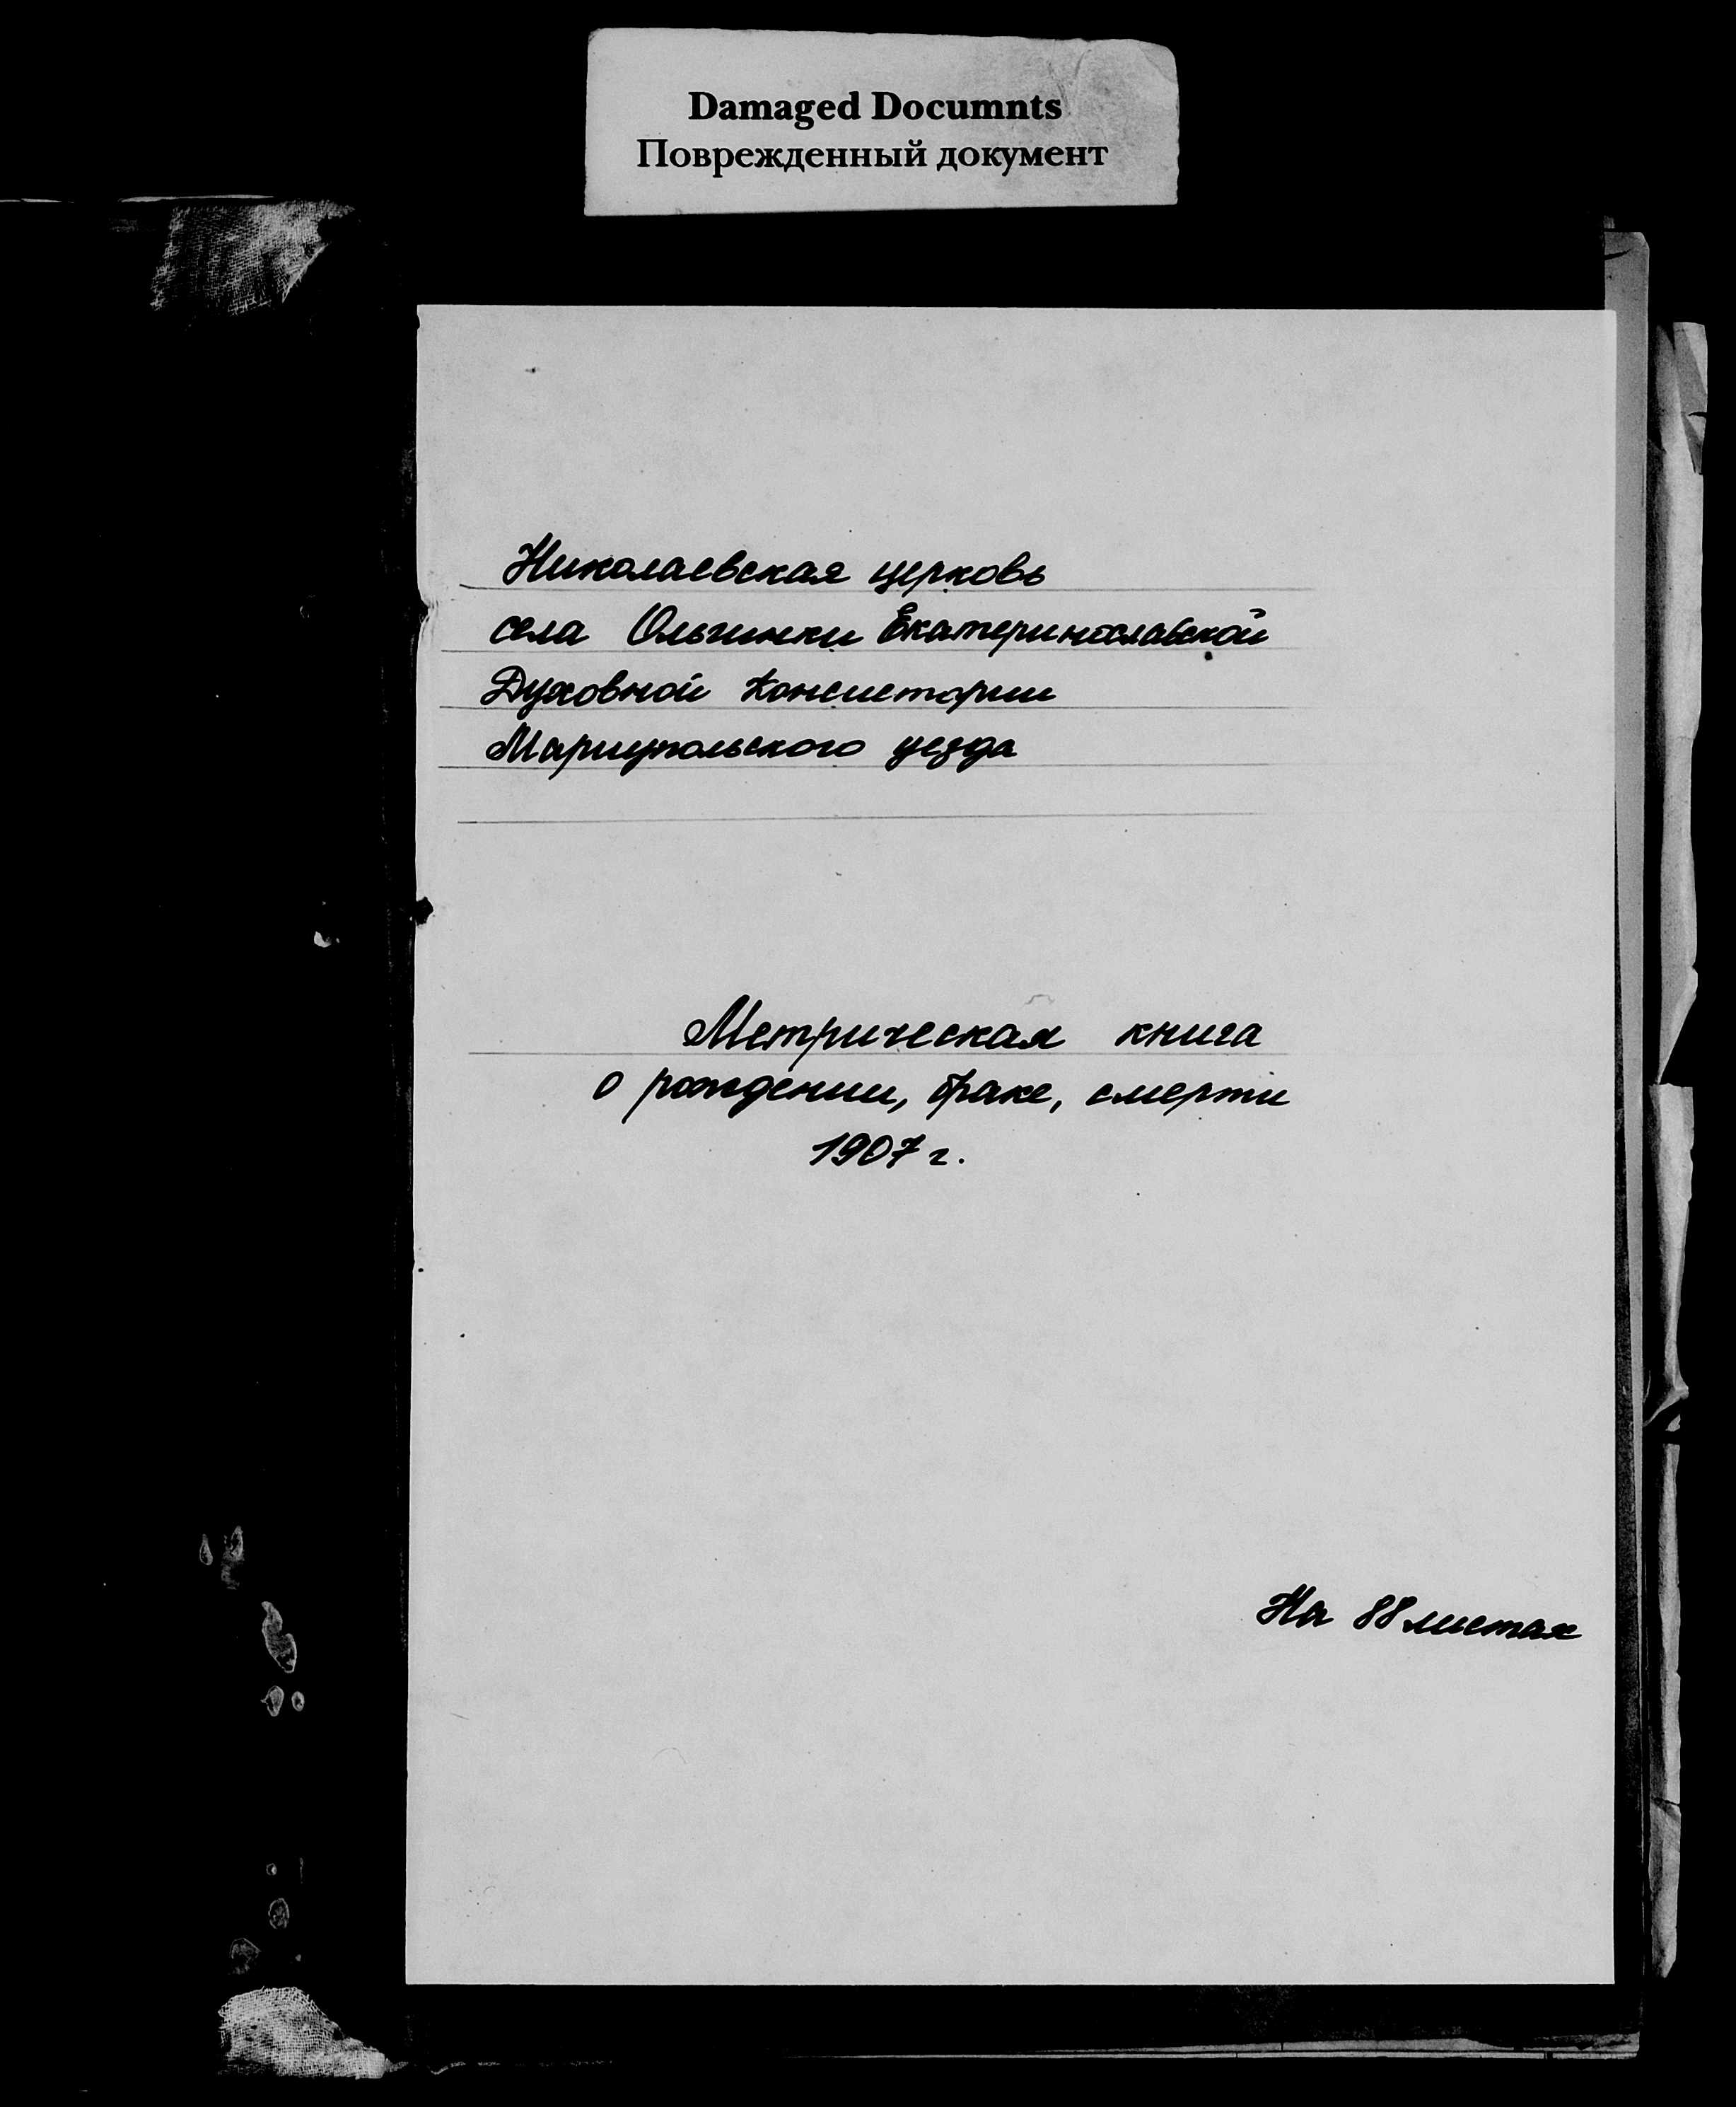 Damaged Documnts
Поврежденный документ
Николаевская церковь
села Ольгинки Екатеринославской
Духовной Консистории
Мариупольского уезда
Метрическая книга
о рождении, браке, смерти
1907 г.
На 88 листах